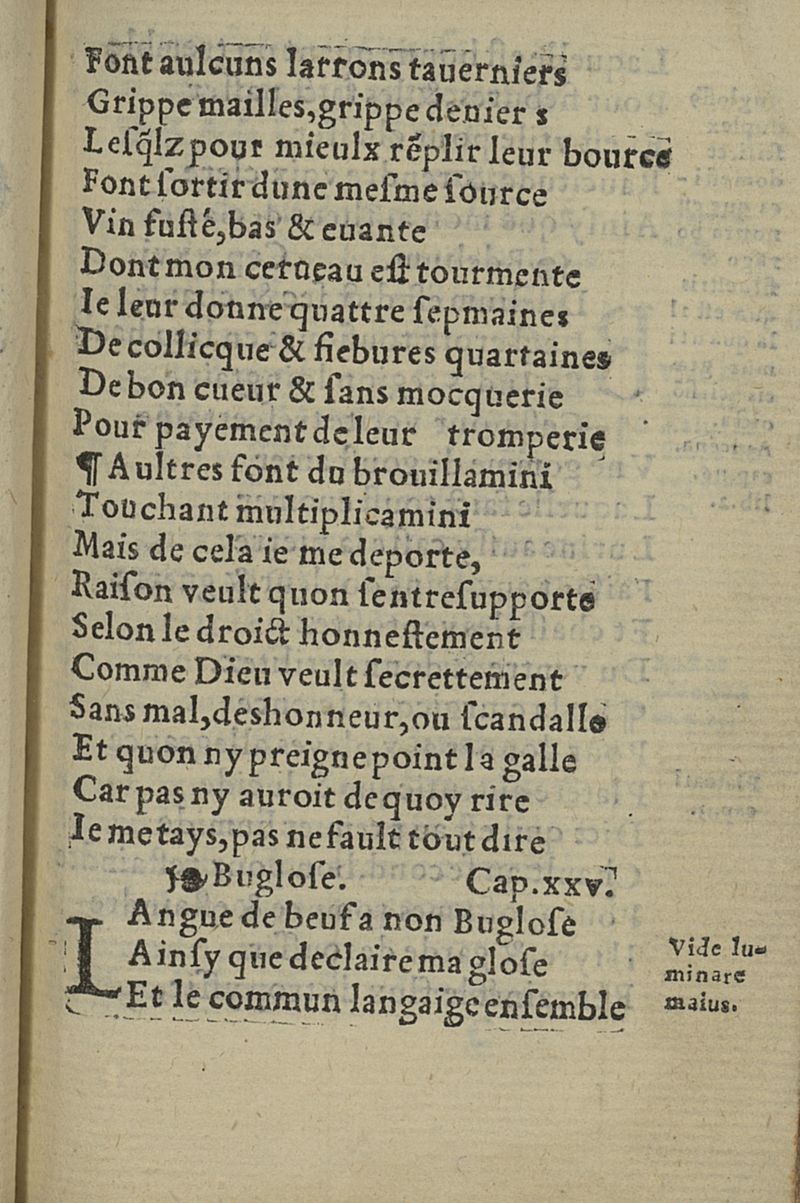 Font aulcuns larrons tauerniers
Grippe mailles,grippe denier s
Leſq̃lz pour mieulx rẽplir leur bource
Font ſortir dune meſme ſource
Vin fuſté,bas & euante
Dont mon cerueau eſt tourmente
Ie leur donne quattre ſepmaines
De collicque & fiebures quartaines
De bon cueur & ſans mocquerie
Pour payement de leur tromperie
¶ Aultres font du brouillamini
Touchant multiplicamini
Mais de cela ie me deporte,
Raiſon veult quon ſentreſupporte
Selon le droict honneſtement
Comme Dieu veult ſecrettement
Sans mal,deshonneur,ou ſcandalle
Et quon ny preigne point la galle
Car pas ny auroit dequoy rire
Ie me tays,pas ne fault tout dire
❧ Bugloſe. Cap.xxv.
LAngue de beuf a non Bugloſe
Ainſy que declaire ma gloſe
Et le commun langaige enſemble
Vide lu-
minare
maius.